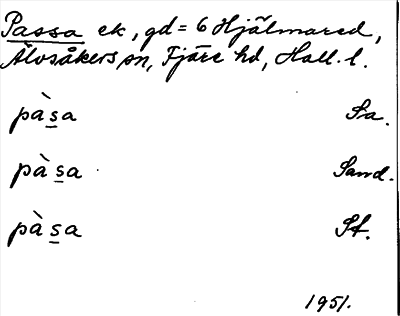 Passa ek, gd = 6 Hjälmared,
Älvsåkers sn, Fjäre hd, Hall. l.
pàsa Sa.
pàsa Sand.
pàsa St.
1951.